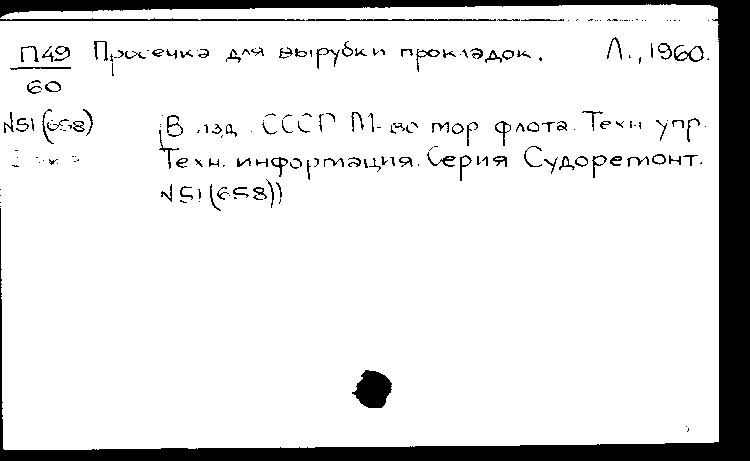 П49 Просечка для вырубки прокладок. Л., 1960.
60
N51(658) (В изд. СССР М-во мор флота. Техн упр.
Техн. информация. Серия Судоремонт.
N51(658))